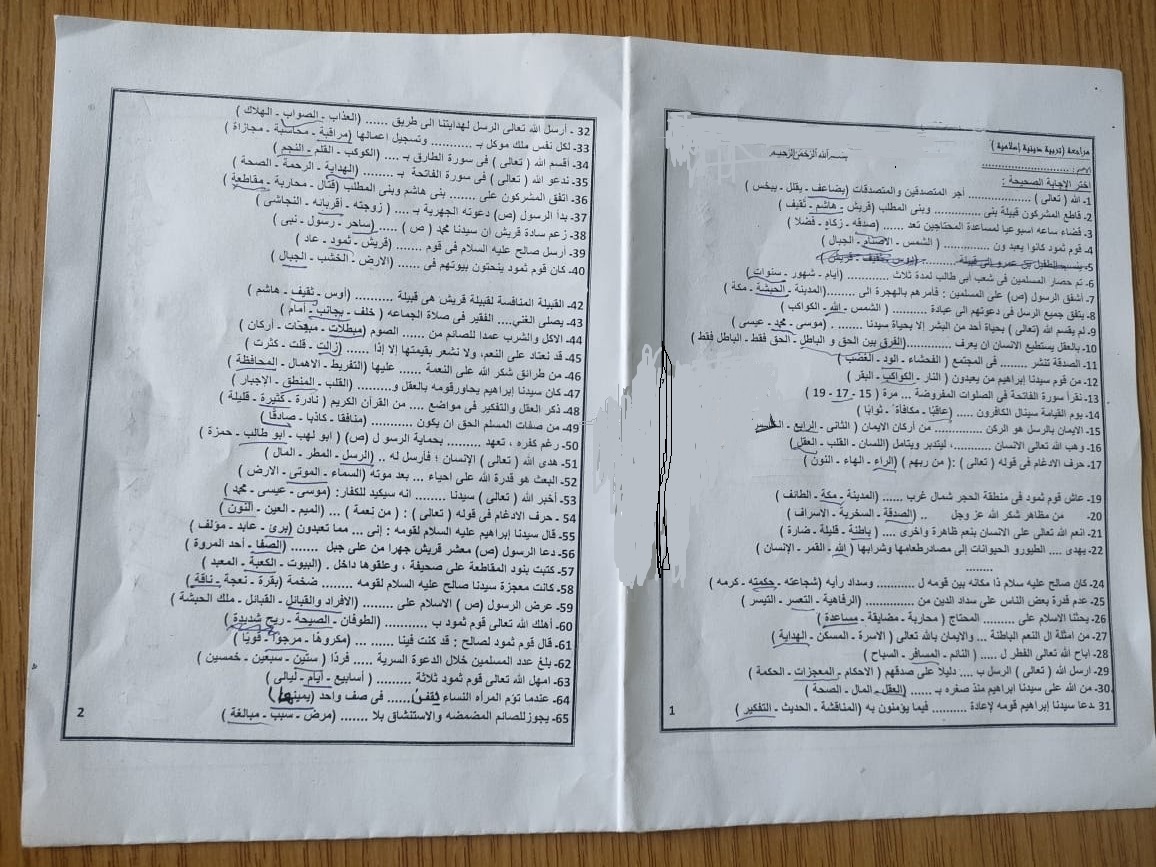 مراجعة (تربية دينية إسلامية )
بسم الله الرحمن الرحيم
الاسم: ..............................
اختر الإجابة الصحيحة :
1- الله (تعالى ) ................ أجر المتصدقين والمتصدقات (يضاعف - يقلل - يبخس )
2- قاطع المشركون قبيلة بنى ............. وبنى المطلب (قريش - هاشم - ثقيف )
3- قضاء ساعه اسبوعيا لمساعدة المحتاجين تعد ...... (صدقه - زكاه - فضلا )
4- قوم ثمود كانوا يعبدون ............... ( الشمس - الاصنام - الجبال )
6- تم حصار المسلمين فى شعب أبى طالب لمدة ثلاث .......... (أيام - شهور - سنوات )
7- أشفق الرسول (ص) على المسلمين : فأمرهم بالهجرة الى ........(المدينة - الحبشة - مكة )
8- يتفق جميع الرسل فى دعوتهم الى عبادة .......... ( الشمس - الله - الكواكب )
9- لم يقسم الله (تعالى ) بحياة أحد من البشر إلا بحياة سيدنا ....... (موسى - محمد - عيسى )
10- بالعقل يستطيع الانسان ان يعرف ...........(الفرق بين الحق و الباطل - الحق فقط - الباطل فقط )
11- الصدقة تنشر ........ فى المجتمع ( الفحشاء - الود - الغضب )
12- من قوم سيدنا إبراهيم من يعبدون ( النار - الكواكب - البقر )
13- نقرأ سورة الفاتحة فى الصلوات المفروضة ... مرة ( 15 - 17 - 19 )
14- يوم القيامة سينال الكافرون ..... (عاقبًا - مكافأة - ثوابًا )
15- الايمان بالرسل هو الركن ............. من أركان الايمان ( الثانى - الرابع -
16- وهب الله تعالى الانسان ..........، ليتدبر ويتامل (اللسان - القلب - العقل)
17- حرف الادغام فى قوله ( تعالى ) :( من ربهم ) (الراء - الهاء - النون )
19- عاش قوم ثمود فى منطقة الحجر شمال غرب ...... (المدينة - مكة - الطائف )
20- من مظاهر شكر الله عز وجل .. (الصدقة - السخرية - الاسراف )
21- انعم الله تعالى على الانسان بنعم ظاهرة واخرى .... ( باطنة - قليلة - ضارة )
22- يهدى .... الطيورو الحيوانات إلى مصادرطعامها وشرابها ( الله - القمر - الإنسان )
.........
24- كان صالح عليه سلام ذا مكانه بين قومه ل .......... وسداد رأيه (شجاعته - حكمته - كرمه )
25- عدم قدرة بعض الناس على سداد الدين من ............. (الرفاهية - التعسر - التيسر )
26- يحثنا الاسلام على .......... المحتاج ( محاربة - مضايقة - مساعدة )
27- من امثلة ال النعم الباطنة ... والايمان بالله تعالى ( الاسرة - المسكن - الهداية )
28- اباح الله تعالى الفطر ل ..... ( النائم - المسافر - السباح )
29- ارسل الله ( تعالى ) الرسل ب .... دليلًا على صدقهم ( الاحكام - المعجزات - الحكمة )
30- من الله على سيدنا ابراهيم منذ صغره بـ ...... (العقل - المال - الصحة )
31- دعا سيدنا إبراهيم قومه لإعادة .......... فيما يؤمنون به (المناقشة - الحديث - التفكير )
1
32 - أرسل الله تعالى الرسل لهدايتنا الى طريق ...... (العذاب - الصواب - الهلاك )
33- لكل نفس ملك موكل بـ ............ وتسجيل اعمالها (مراقبة - محاسبة - مجازاة )
34- أقسم الله ( تعالى ) فى سورة الطارق بـ .... (الكوكب - القلم - النجم )
35- ندعو الله ( تعالى ) فى سورة الفاتحة بـ ........ (الهداية - الرحمة - الصحة )
36- اتفق المشركون على ....... بنى هاشم وبنى المطلب (قتال - محاربة - مقاطعة )
37- بدأ الرسول (ص) دعوته الجهرية بـ .... ( زوجته - أقربائه - النجاشى )
38- زعم سادة قريش إن سيدنا محمد ( ص ) ..... (ساحر - رسول - نبى )
39- أرسل صالح عليه السلام فى قوم ....... (قريش - ثمود - عاد )
40- كان قوم ثمود ينحتون بيوتهم فى ...... (الارض - الخشب - الجبال )
42- القبيلة المنافسة لقبيلة قريش هى قبيلة .......... (أوس - ثقيف - هاشم )
43- يصلى الغني.... الفقير فى صلاة الجماعه ( خلف - بجانب - أمام )
44- الاكل والشرب عمدا للصائم من ...... الصوم (مبطلات - مبهجات - أركان )
45- قد نعتاد على النعم، ولا نشعر بقيمتها إلا إذا ..... (زالت - قلت - كثرت )
46- من طرائق شكر الله على النعمة ...... عليها (التفريط - الاهمال - المحافظة )
47- كان سيدنا إبراهيم يحاورقومه بالعقل و.......... (القلب - المنطق - الإجبار )
48- ذكر العقل والتفكير فى مواضع .... من القرآن الكريم ( نادرة - كثيرة - قليلة )
49- من صفات المسلم الحق ان يكون ........... (منافقا - كاذبا - صادقا )
50- رغم كفره ، تعهد ......... بحماية الرسو ل (ص) ( ابو لهب - أبو طالب - حمزة )
51- هدى الله ( تعالى ) الإنسان ؛ فأرسل له .. (الرسل - المطر - المال )
52- البعث هو قدرة الله على احياء ... بعد موته (السماء - الموتى - الارض )
53- أخبر الله ( تعالى ) سيدنا ......... انه سيكيد للكفار: (موسى - عيسى - محمد )
54 - حرف الادغام فى قوله ( تعالى ) : ( من نعمة ) ... (الميم - العين - النون )
55- قال سيدنا إبراهيم عليه السلام لقومه : إنى ... مما تعبدون (برئ - عابد - مؤلف )
56- دعا الرسول (ص) معشر قريش جهرا من على جبل ....... (الصفا - أحد المروة )
57- كتبت بنود المقاطعة على صحيفة ، وعلقوها داخل . (البيوت - الكعبة - المعبد )
58- كانت معجزة سيدنا صالح عليه السلام لقومه ....... ضخمة (بقرة - نعجة - ناقة )
59- عرض الرسول (ص ) الاسلام على ........ (الافراد والقبائل - القبائل - ملك الحبشة )
60- أهلك الله تعالى قوم ثمود ب ........... (الطوفان - الصيحة - ريح شديدة )
61- قال قوم ثمود لصالح : قد كنت فينا ..... (مكروهًا - مرجوًا - قويًا )
62- بلغ عدد المسلمين خلال الدعوة السرية ..... فردًا ( ستين - سبعين - خمسين )
63- امهل الله تعالى قوم ثمود ثلاثة ......... ( أسابيع - أيام - ليالى )
64- عندما تؤم المرأه النساء تقف ...... فى صف واحد (يمينها )
65- يجوزللصائم المضمضه والاستنشاق بلا ....... (مرض - سبب - مبالغة )
2